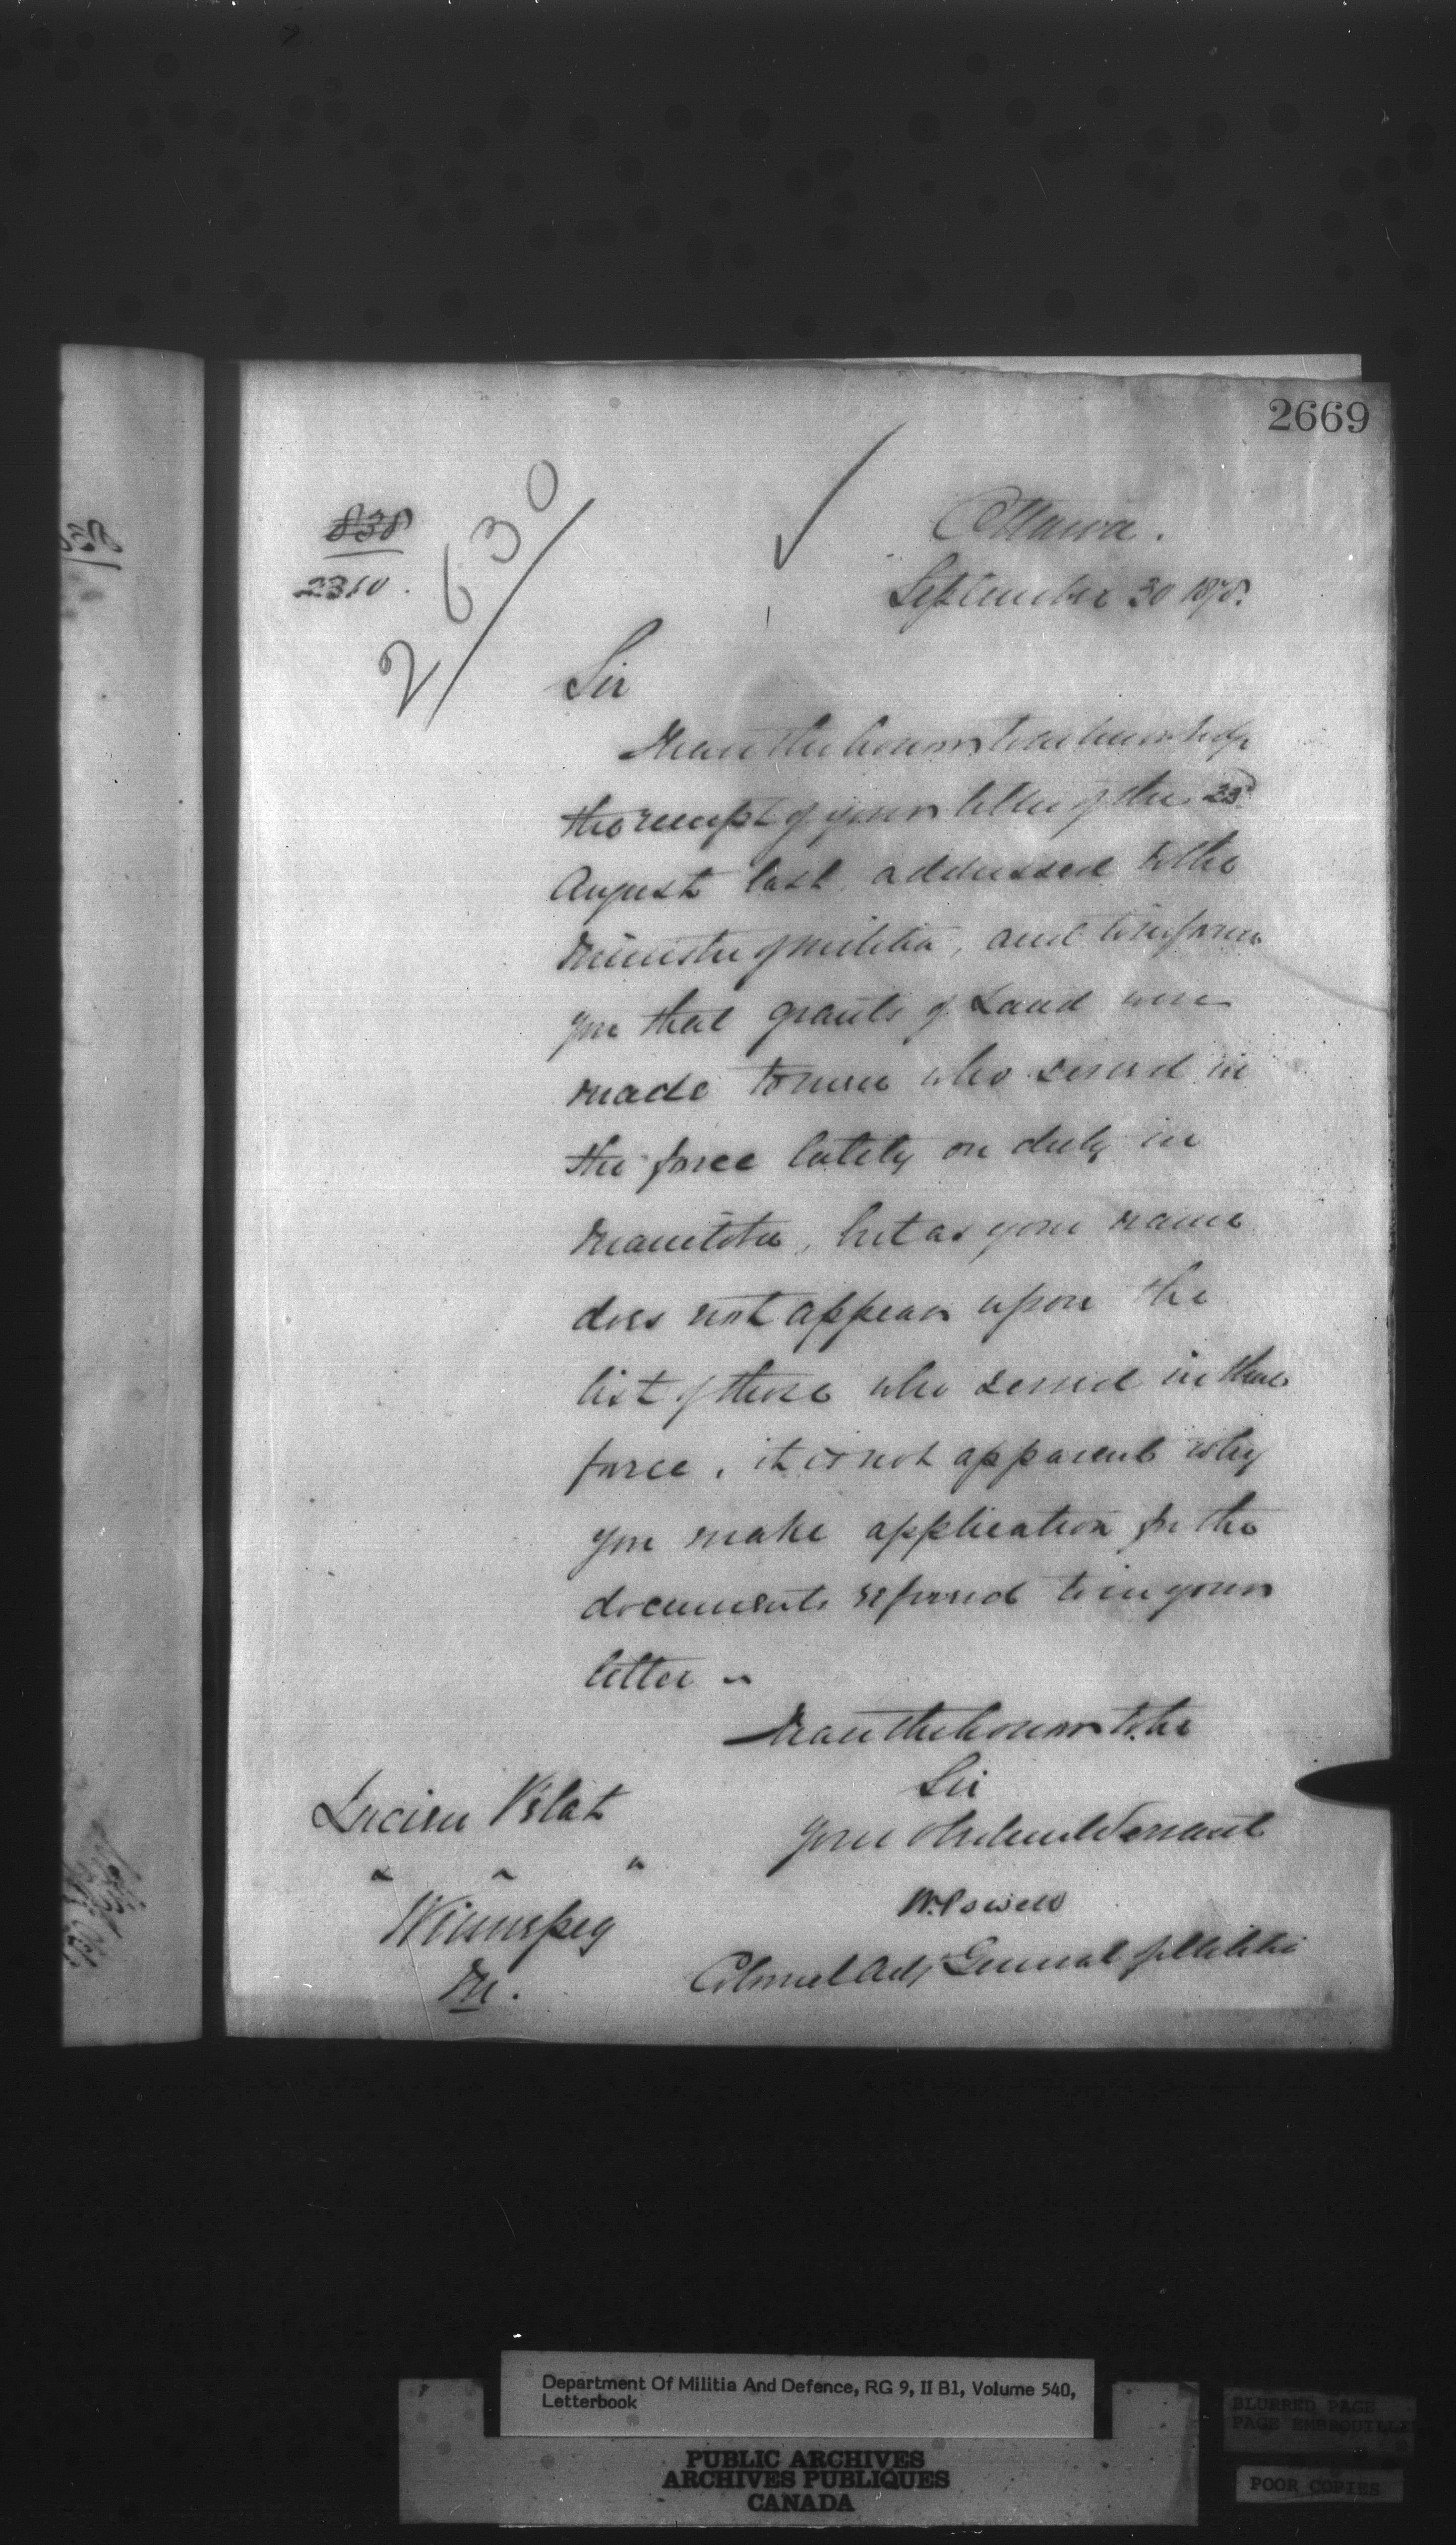 2669
838
2310.
2630
Ottawa.
September 30 1878.
Sir
I have the honor to acknowledge
the receipt of your letter of the 23d
August last, addressed to the
Minister of Militia, and to inform
you that grants of Land were
made to men who served in
the force lately on duty in
Manitoba, but as your name
does not appear upon the
list of those who served in that
force, it is not apparent why
you make application for the
documents referred to in your
letter
I have the honor to be
Sir
Your obedient Servant
W. Powell
Colonel Adjt General of Militia
Lucien
Winnipeg
M.
Department Of Militia And Defence, RG 9, II B1, Volume 540,
Letterbook
PUBLIC ARCHIVES
ARCHIVES PUBLIQUES
CANADA
BLURRED PAGE
PAGE EMBROUILLE
POOR COPIES